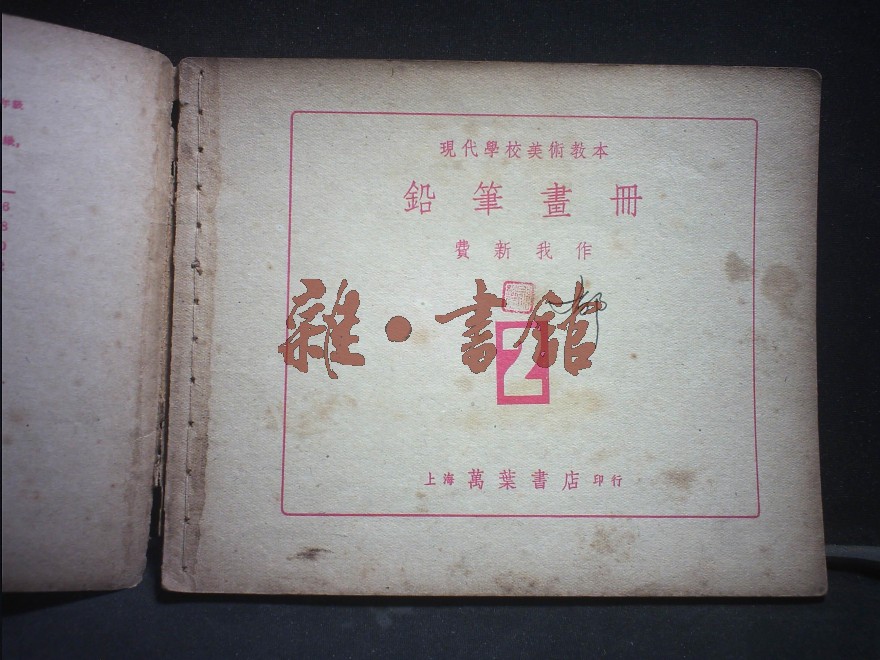 現代學校美術教本
鉛筆畫冊
費新我作
雜·書館
2
上海 萬葉書店 印行